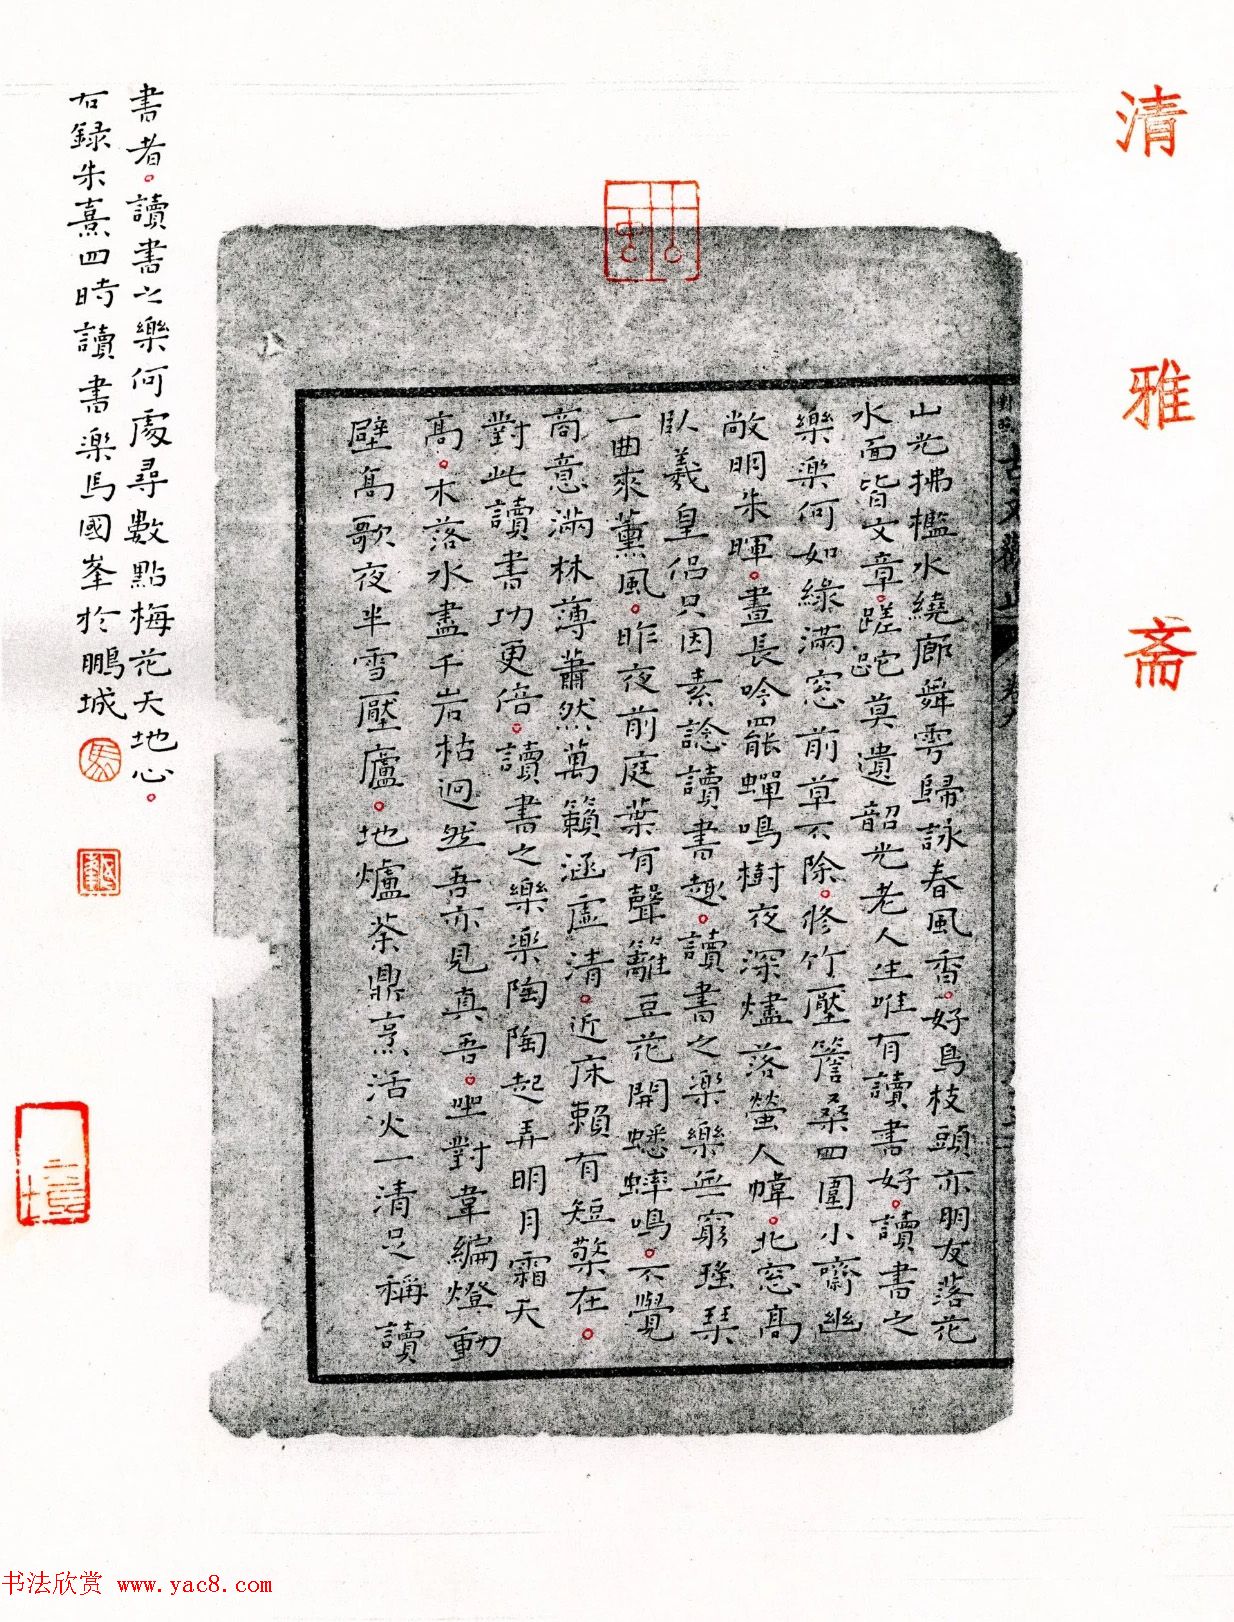 清雅斋
山光拂檻水繞廊舞雩歸詠春風香。好鳥枝頭亦朋友落花
水面皆文章。蹉跎莫遺韶光老人生唯有讀書好。讀書之
樂樂何如綠滿窓前草不除。修竹壓簷桑四圍小齋幽
敞明朱暉。晝長吟罷蟬鳴樹夜深燼落螢人幃。北窓高
臥羲皇侶只因素諗讀書趣。讀書之樂樂無窮瑤琴
一曲來薰風。昨夜前庭葉有聲籬豆花開蟋蟀鳴。不覺
商意滿林薄蕭然萬籟涵虛清。近床賴有短檠在。
對此讀書功更倍。讀書之樂樂陶陶起弄明月霜天
高。木落水盡千岩枯迥然吾亦見真吾。坐對韋編燈動
壁高歌夜半雪壓廬。地爐茶鼎烹活火一清足稱讀
書者。讀書之樂何處尋數點梅花天地心。
右錄朱熹四時讀書樂馬國峯於鵬城
书法欣赏 www.yac8.com